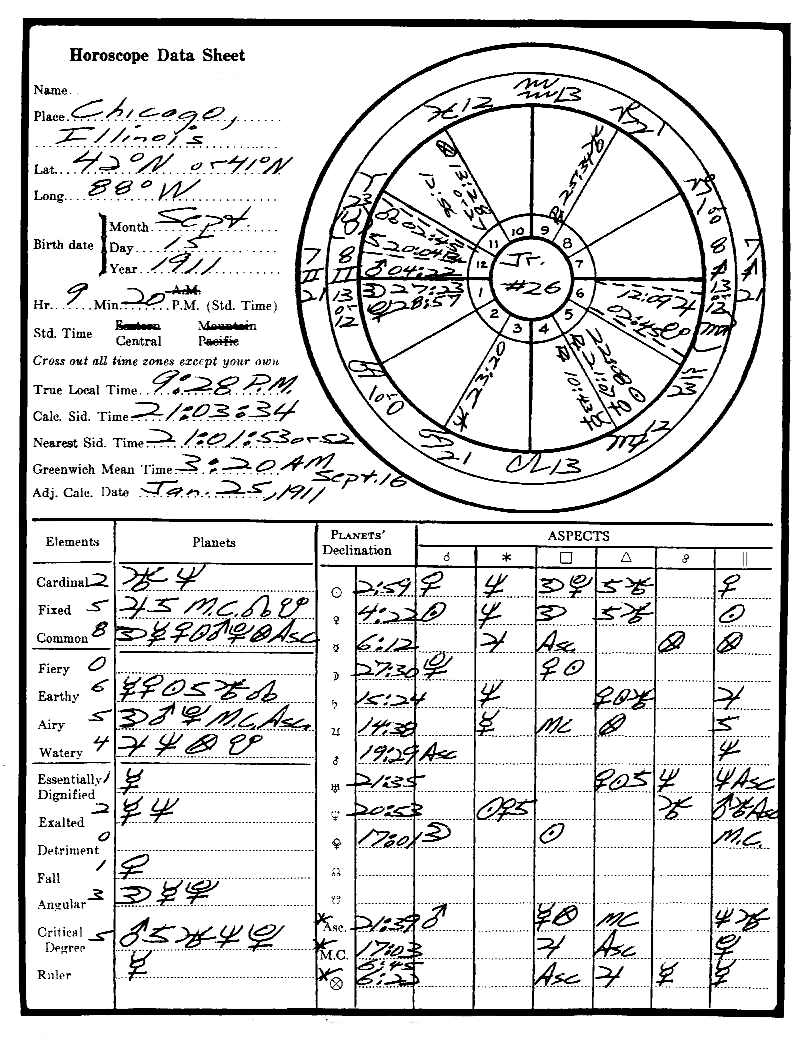 Horoscope Data Sheet
Name
Place Chicago,
Illinois
Lat. 42°N or 41°N
Long. 88°W
Birth date
Month Sept.
Day 15
Year 1911
Hr. 9 Min. 20 A.M. P.M. (Std. Time)
Std. Time Eastern Mountain
Central Pacific
Cross out all time zones except your own
True Local Time 9:28 P.M.
Calc. Sid. Time 21:03:34
Nearest Sid. Time 21:01:53 or 52
Greenwich Mean Time 3:20 AM
Sept. 16
Adj. Calc. Date Jan. 25, 1911
♓12
♒13
♑21
10 9
11 8
12 7
1 6
2 5
3 4
Jr.
#26
♂04:22
☽27:23
28:57
12:09♃
♆23:20
♋21
♌13
♍12
Elements Planets
PLANETS' Declination
ASPECTS
☌ ⚹ □ △ ☍ ∥
Cardinal 2 ♅ ♆
Fixed 5 ♃ ♄ M.C. ☊ ☋
Common 8 ☽ ☿ ♀ ☉ ♂ ♇ ⊗ Asc
Fiery 0
Earthy 6 ☿ ♀ ☉ ♄ ♅ ☊
Airy 5 ☽ ♂ ♇ M.C. Asc.
Watery 4 ♃ ♆ ⊗ ☋
Essentially Dignified 1 ☿
Exalted 2 ☿ ♆
Detriment 0
Fall 1 ♀
Angular 3 ☽ ☿ ♇
Critical Degree 5 ♂ ♄ ♅ ♆ ♇
Ruler ☿
☉ 2:59 ♀ ♆ ☽ ♇ ♄ ♅ ♀
♀ 4:22 ☉ ♆ ☽ ♄ ♅ ☉
☿ 6:12 ♃ Asc ⊗ ⊗
☽ 27:30 ♇ ♀ ☉
♄ 15:24 ♆ ♀ ☉ ♅ ♃
♃ 14:38 ☿ MC ⊗ ♄
♂ 19:29 Asc ♆
♅ 21:35 ♀ ☉ ♄ ♆ ♆ Asc
♆ 20:53 ☉ ♀ ♄ ♅ ♂ ♅ Asc
♇ 17:01 ☽ ☉ M.C.
☊
☋
*Asc. 21:39 ♂ ☿ ⊗ MC ♆ ♅
*M.C. 17:03 ♃ Asc ♇
*⊗ 6:45 6:22 Asc ♃ ☿ ☿